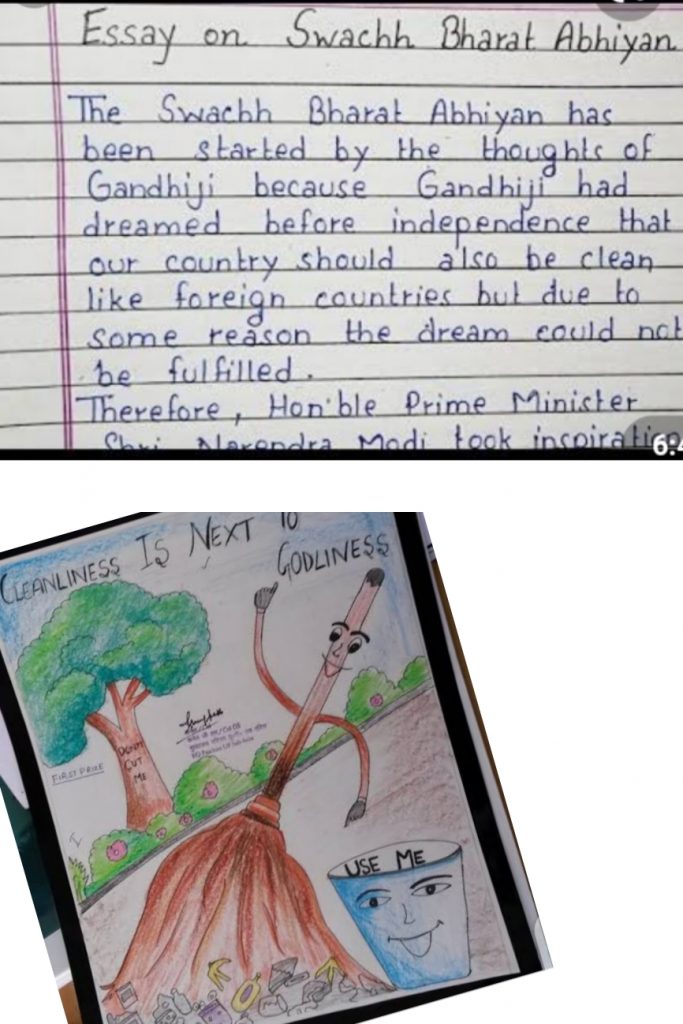 Essay on Swachh Bharat Abhiyan
The Swachh Bharat Abhiyan has
been started by the thoughts of
Gandhiji because Gandhiji had
dreamed before independence that
our country should also be clean
like foreign countries but due to
some reason the dream could not
be fulfilled.
Therefore, Hon'ble Prime Minister
Shri Narendra Modi took inspiratio
6:4
CLEANLINESS IS NEXT TO
GODLINESS
DON'T
CUT
ME
FIRST PRIZE
USE ME